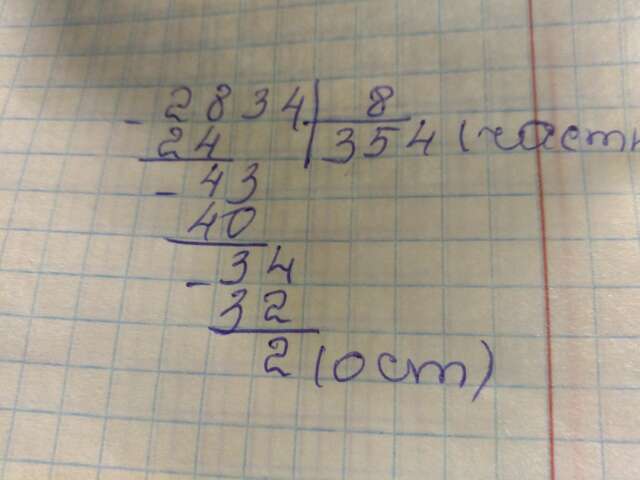 - 2834 | 8
24 | 354 (частн
- 43
40
- 34
32
2 (ост)